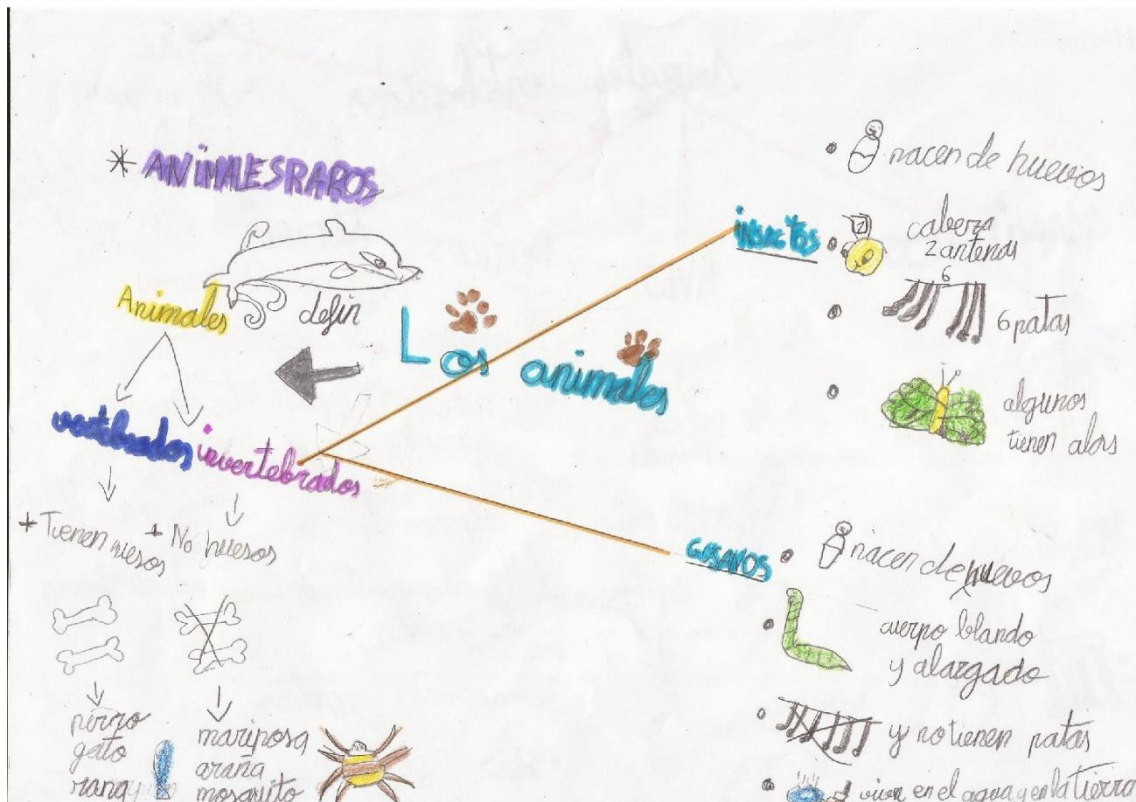 * ANIMALES RAROS
Animales
delfin
Los animales
vertebrados
invertebrados
* Tienen uesos
* No huesos
perro
gato
rana
mariposa
araña
mosquito
insectos
nacen de huevos
cabeza
2 antenas
6
6 patas
algunos
tienen alas
GUSANOS
nacen de huevos
cuerpo blando
y alargado
y no tienen patas
viven en el agua y en la tierra